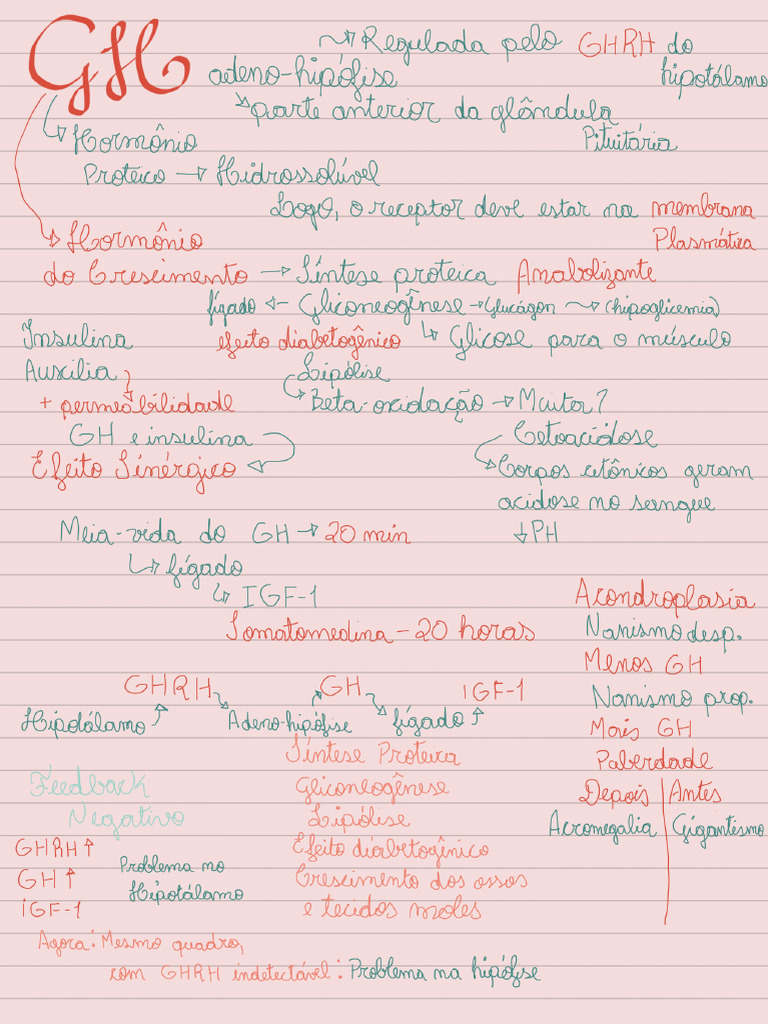 GH
Regulada pelo GHRH do hipotálamo
adeno-hipófise
parte anterior da glândula Pituitária
Hormônio
Proteico → Hidrossolúvel
Logo, o receptor deve estar na membrana
Plasmática
Hormônio
do Crescimento → Síntese proteica Anabolizante
fígado ← Gliconeogênese → Glucagon → (hipoglicemia)
Insulina efeito diabetogênico Glicose para o músculo
Auxilia Lipólise
+ permeabilidade Beta-oxidação → Muita?
GH e insulina Cetoacidose
Efeito Sinérgico Corpos cetônicos geram
acidose no sangue
Meia-vida do GH → 20 min ↓PH
fígado
IGF-1
Somatomedina - 20 horas
Acondroplasia
Nanismo desp.
Menos GH
Nanismo prop.
Mais GH
Puberdade
Depois | Antes
Acromegalia | Gigantismo
GHRH GH IGF-1
Hipotálamo Adeno-hipófise fígado
Síntese Proteica
Gliconeogênese
Lipólise
Efeito diabetogênico
Crescimento dos ossos
e tecidos moles
Feedback
Negativo
GHRH ↑
GH ↑
IGF-1
Problema no
Hipotálamo
Agora: Mesmo quadro,
com GHRH indetectável: Problema na hipófise